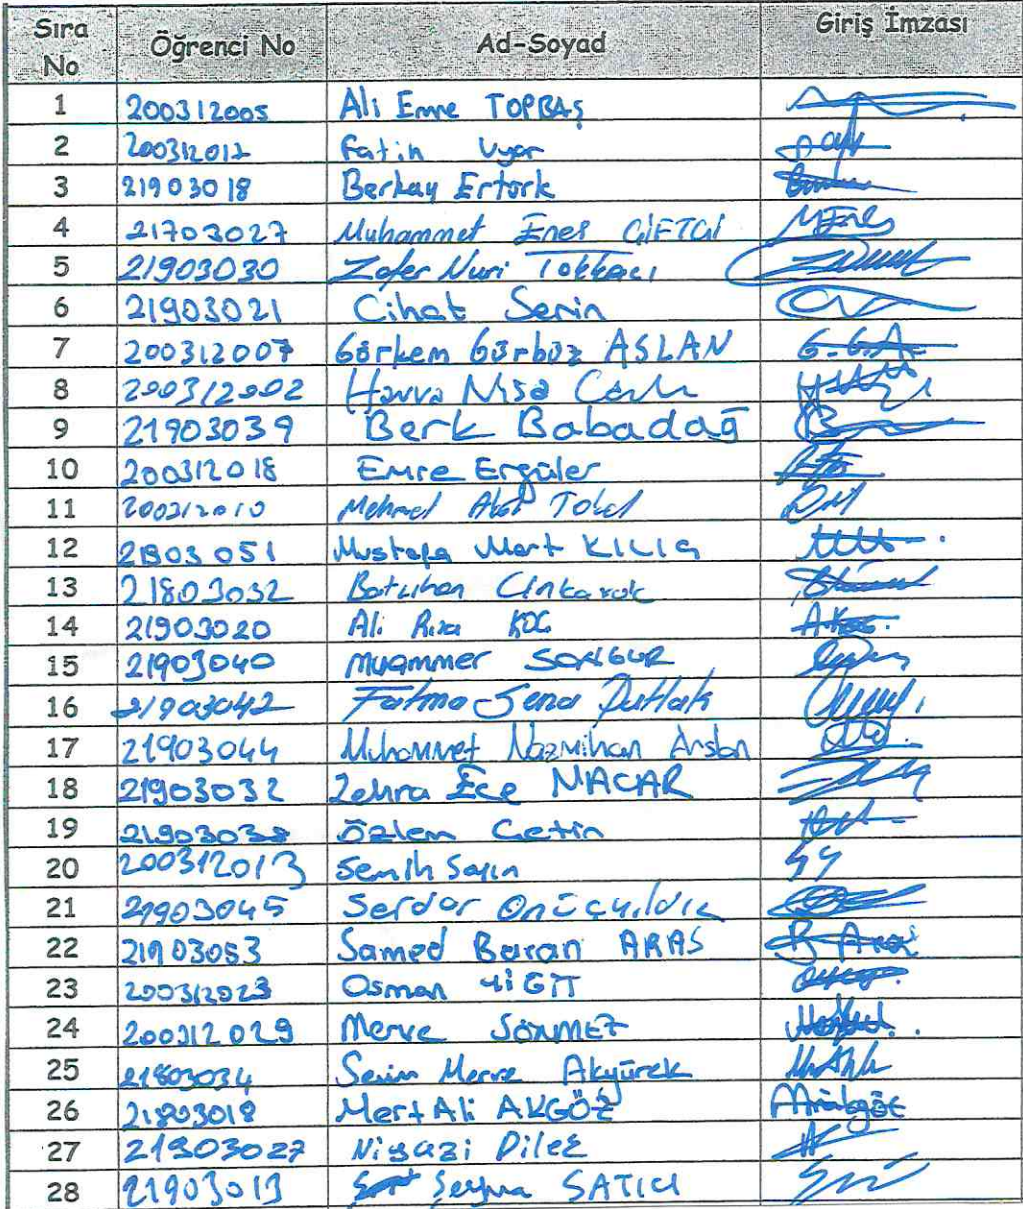 Sıra No Öğrenci No Ad-Soyad Giriş İmzası
1 200312005 Ali Emre TOPBAŞ
2 200312012 Fatih Uyar
3 21903018 Berkay Ertürk
4 21703027 Muhammet Enes ÇİFTÇİ MENES
5 21903030 Zafer Nuri Tokkacı
6 21903021 Cihat Serin
7 200312007 Görkem Gürbüz ASLAN G.G.A.
8 200312002 Havva Nisa Canlı
9 21903039 Berk Babadağ
10 200312018 Emre Ergüler
11 200312010 Mehmet Akif
12 21803051 Mustafa Mert KILIÇ
13 21803032 Batuhan
14 21903020 Ali Rıza KOÇ A.Koç.
15 21903040 Muammer SONGUR
16 21903042 Fatma Sena Parlak
17 21903044 Muhammet Nazmihan Arslan
18 21903032 Zehra Ece MACAR
19 Özlem Çetin
20 200312013 Semih Sayın
21 21903045 Serdar Onüçyıldız
22 21903053 Samed Baran ARAS B Aras
23 200312023 Osman YİĞİT
24 200312029 Merve SÖNMEZ
25 21803034 Merve Akyürek
26 21803018 Mert Ali AKGÖZ
27 21903027 Niyazi Dilek
28 21903013 Şeyma SATICI